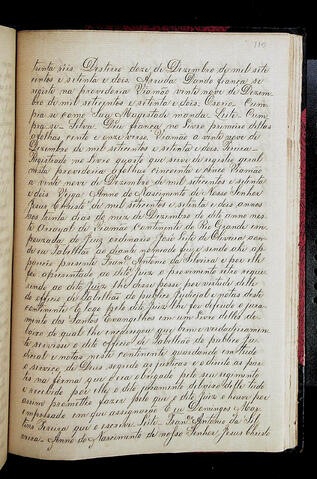 110
trinta reis. Desterro doze de Dezembro de mil sete
centos e setenta e dois. Arruda. Dando fiança se
registe na provedoria Viamão vinte nove de Dezem
bro de mil setecentos e setenta e dois. Ozorio. Cum
pra-se como Sua Magestade manda. Leste. Cum
pra-se. Silva. Deu fiança no Livro primeiro dellas
a folhas cento e onze verso. Viamão a vinte nove de
Dezembro de mil setecentos e setenta e dois.
Registrado no Livro quarto que serve de registro geral
nesta provedoria a folhas cincoenta e cinco Viamão
a vinte nove de Dezembro de mil setecentos e setenta
e dois. Anno do Nascimento de Nosso Senhor
Jesus Christo de mil setecentos e setenta e dois annos
aos trinta dias do mez de Dezembro do dito anno nes
te Arraial de Viamão Continente do Rio Grande em
pouzada do Juiz ordinario José Leite de Oliveira aon
de eu Tabellião ao diante nomeado fui e sendo ahi ap
pareceo prezente Franco Antonio da Silveira e por elle
foi aprezentado ao dito Juiz o provimento retro reque
rendo ao dito Juiz lhe desse posse por virtude delle
do officio de Tabellião do publico judicial e notas deste
continente e logo pelo dito Juiz lhe foi deferido o jura
mento dos Santos Evangelhos em um Livro delles de
baixo do qual lhe encarregou que bem e verdadeiramen
te servisse o dito officio de Tabellião do publico ju
dicial e notas neste continente guardando em tudo
o serviço de Deus segredo as justiças e o direito as par
tes na forma que era obrigado pelo seu regimento
e recebido por elle o dito juramento debaixo delle tudo
assim prometteo fazer pelo que o dito juiz o houve por
empossado em que assignarão E eu Domingos Mar
tins Pereira que o escrevi Leite. Franco Antonio da Sil
veira. Anno do Nascimento de nosso Senhor Jesus Christo